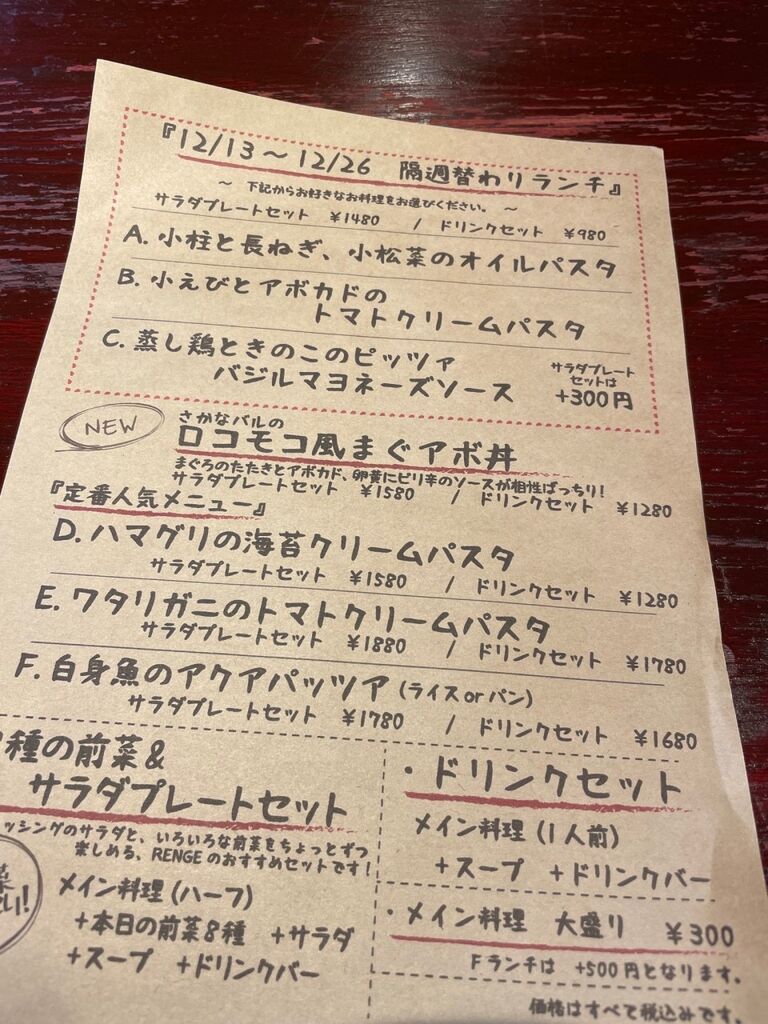 『12/13～12/26 隔週替わりランチ』
～ 下記からお好きなお料理をお選びください。 ～
サラダプレートセット ¥1480 / ドリンクセット ¥980
A. 小柱と長ねぎ、小松菜のオイルパスタ
B. 小えびとアボカドの
トマトクリームパスタ
C. 蒸し鶏ときのこのピッツァ
バジルマヨネーズソース
サラダプレート
セットは
+300円
NEW
さかなバルの
ロコモコ風まぐアボ丼
まぐろのたたきとアボカド、卵黄にピリ辛のソースが相性ばっちり!
サラダプレートセット ¥1580 / ドリンクセット ¥1280
『定番人気メニュー』
D. ハマグリの海苔クリームパスタ
サラダプレートセット ¥1580 / ドリンクセット ¥1280
E. ワタリガニのトマトクリームパスタ
サラダプレートセット ¥1880 / ドリンクセット ¥1780
F. 白身魚のアクアパッツア (ライス or パン)
サラダプレートセット ¥1780 / ドリンクセット ¥1680
種の前菜&
サラダプレートセット
ッシングのサラダと、いろいろな前菜をちょっとずつ
楽しめる、RENGEのおすすめセットです!
メイン料理(ハーフ)
+本日の前菜8種 +サラダ
+スープ +ドリンクバー
・ドリンクセット
メイン料理(1人前)
+スープ +ドリンクバー
・メイン料理 大盛り ¥300
Fランチは +500円となります。
価格はすべて税込みです。